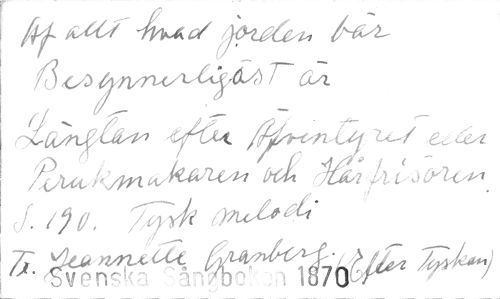 Af allt hvad jorden bär
Besynnerligast är
Längtan efter Äfventyret eller
Perukmakaren och Hårfrisören.
S. 190. Tysk melodi
Tr. Jeannette Granberg. (Efter Tyskan)
Svenska Sångboken 1870